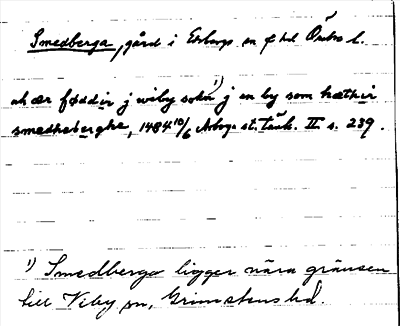 Smedberga, gård i Edsbergs sn o hd Örebro l.
oh ær føddir j wiby sokn ¹⁾ j en by som hæthir
smedhaberghe, 1484 10/6 Arboga st. tänk. II s. 239.
¹⁾ Smedberga ligger nära gränsen
till Viby sn, Grimstens hd.